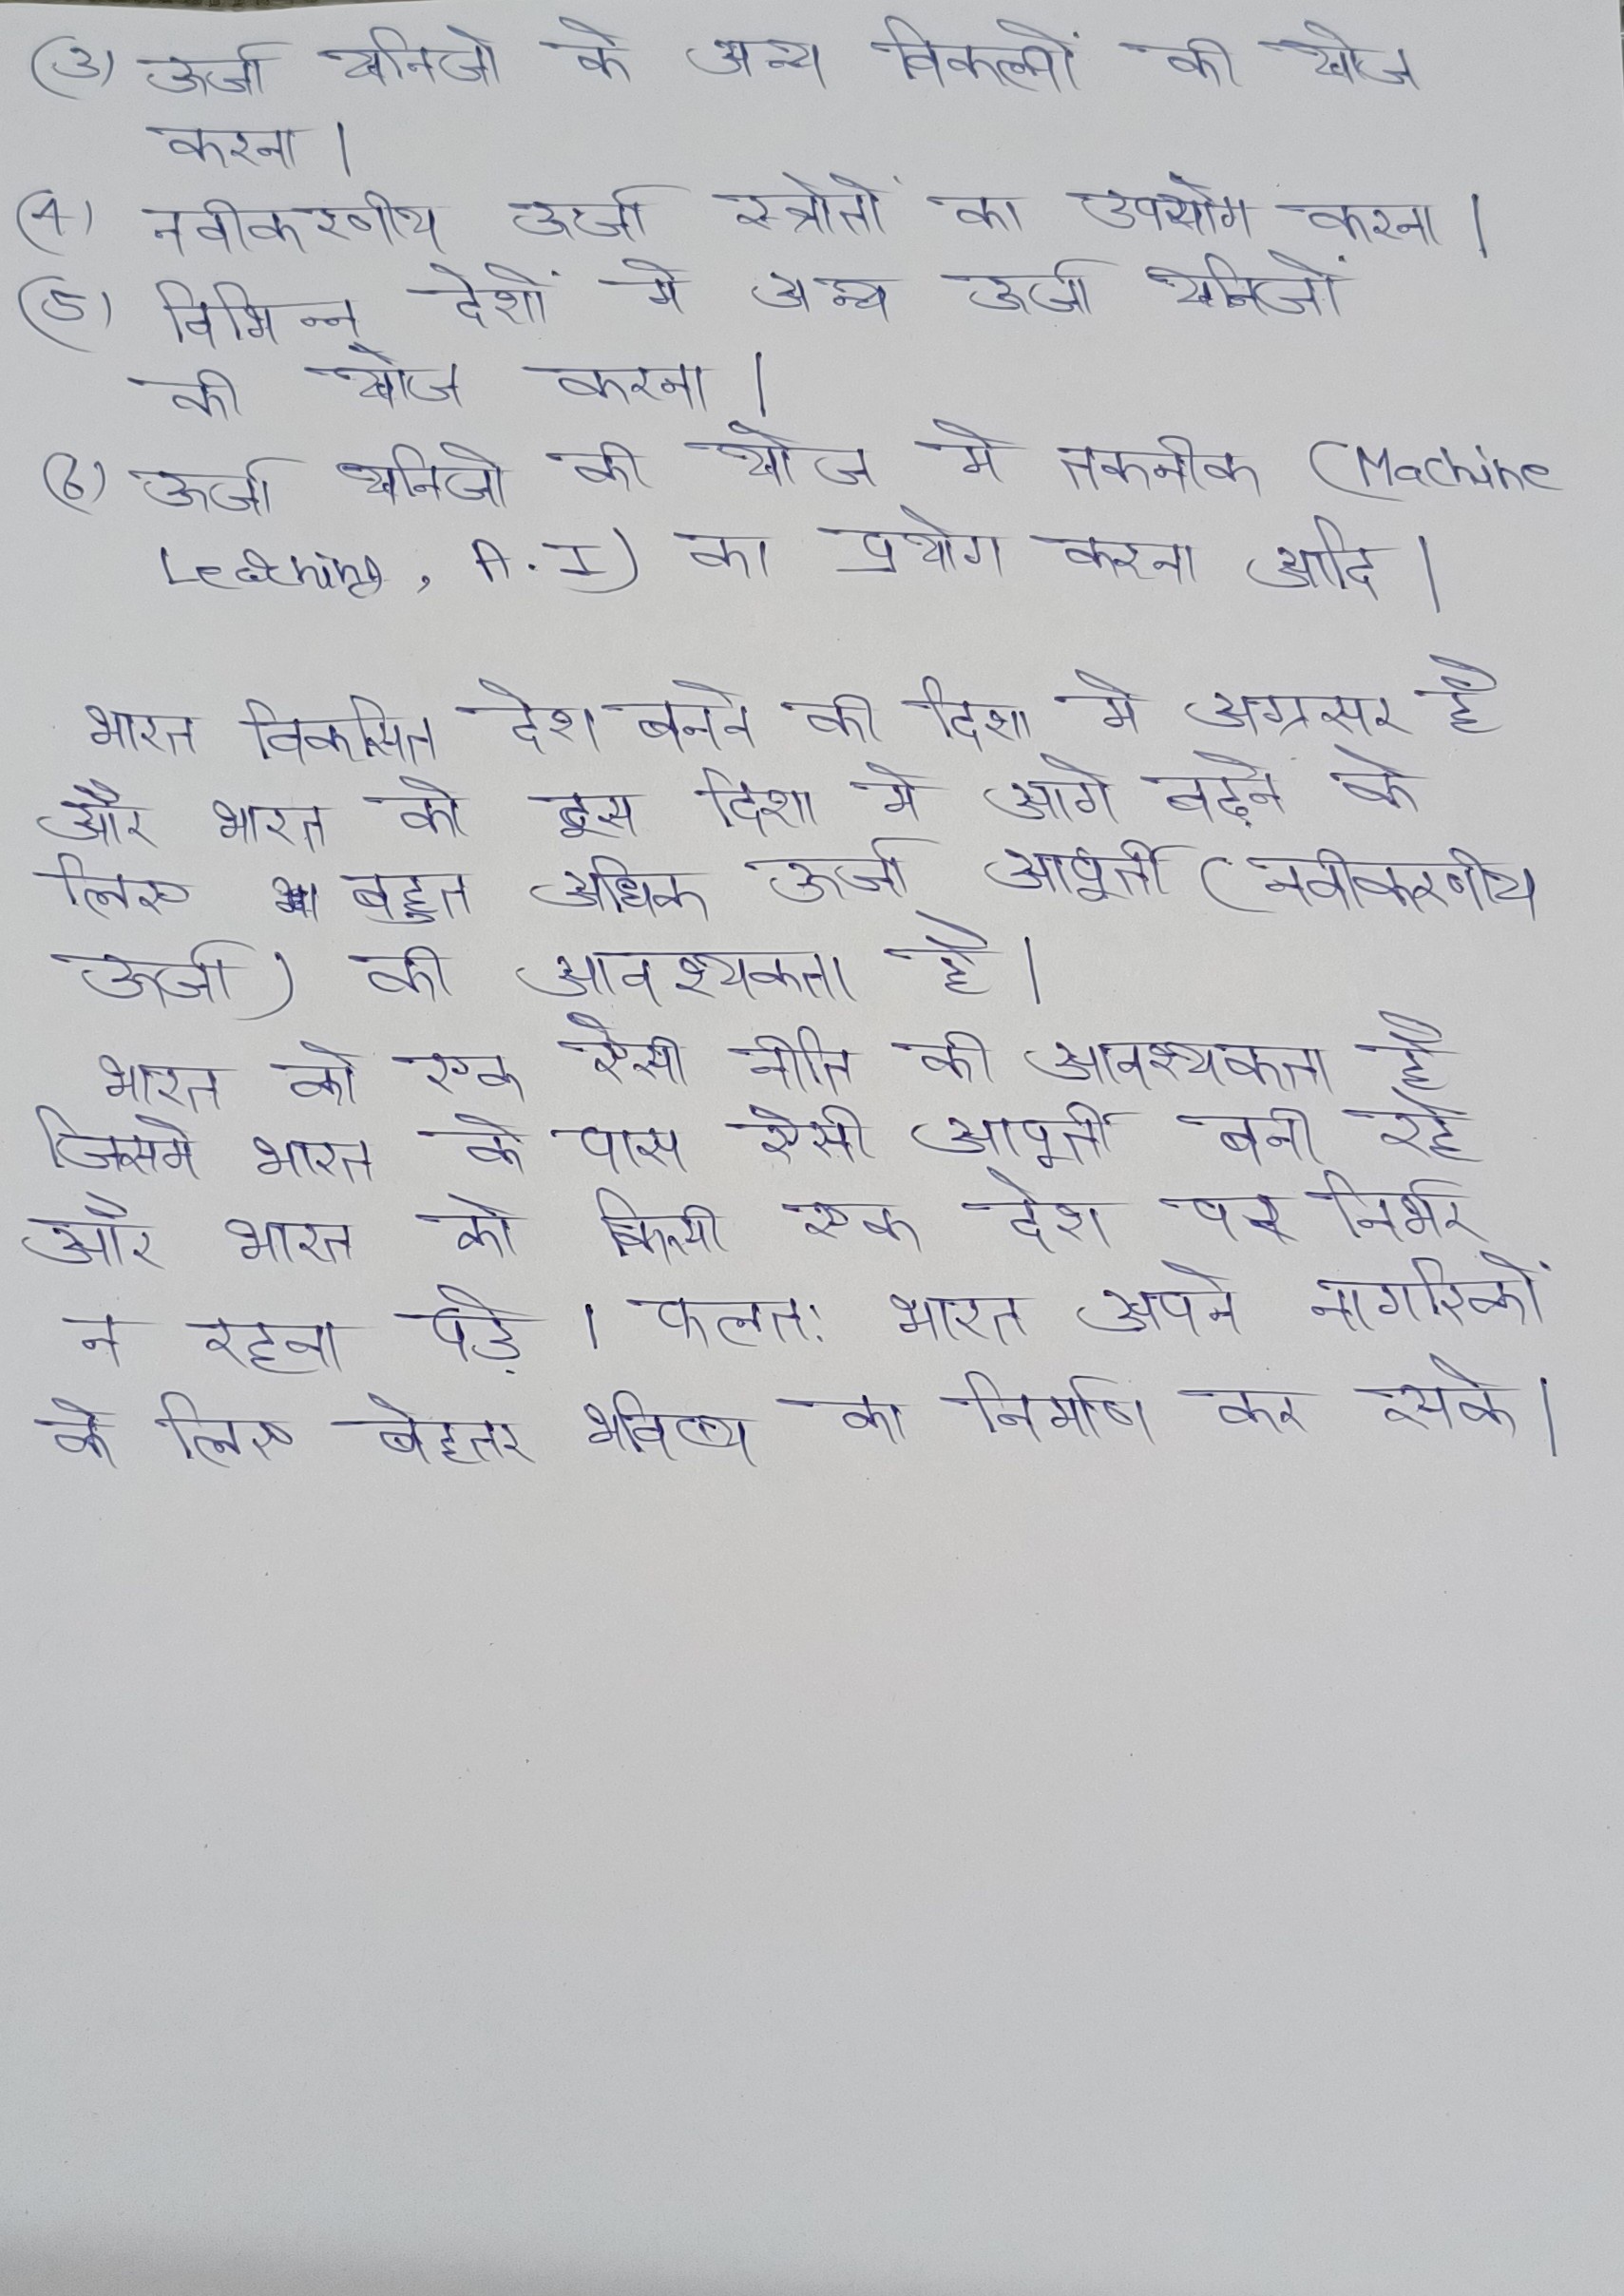 (3) ऊर्जा खनिजो के अन्य विकल्पों की खोज
करना।
(4) नवीकरणीय ऊर्जा स्त्रोतों का उपयोग करना।
(5) विभिन्न देशों मे अन्य ऊर्जा खनिजों
की खोज करना।
(6) ऊर्जा खनिजो की खोज मे तकनीक (Machine
Learning, A.I) का प्रयोग करना आदि।
भारत विकसित देश बनने की दिशा मे अग्रसर है
और भारत को इस दिशा मे आगे बढ़ने के
लिए बहुत अधिक ऊर्जा आपूर्ती (नवीकरणीय
ऊर्जा) की आवश्यकता है।
भारत को एक ऐसी नीति की आवश्यकता है
जिसमे भारत के पास ऐसी आपूर्ती बनी रहे
और भारत को किसी एक देश पर निर्भर
न रहना पड़े। फलत: भारत अपने नागरिकों
के लिए बेहतर भविष्य का निर्माण कर सके।